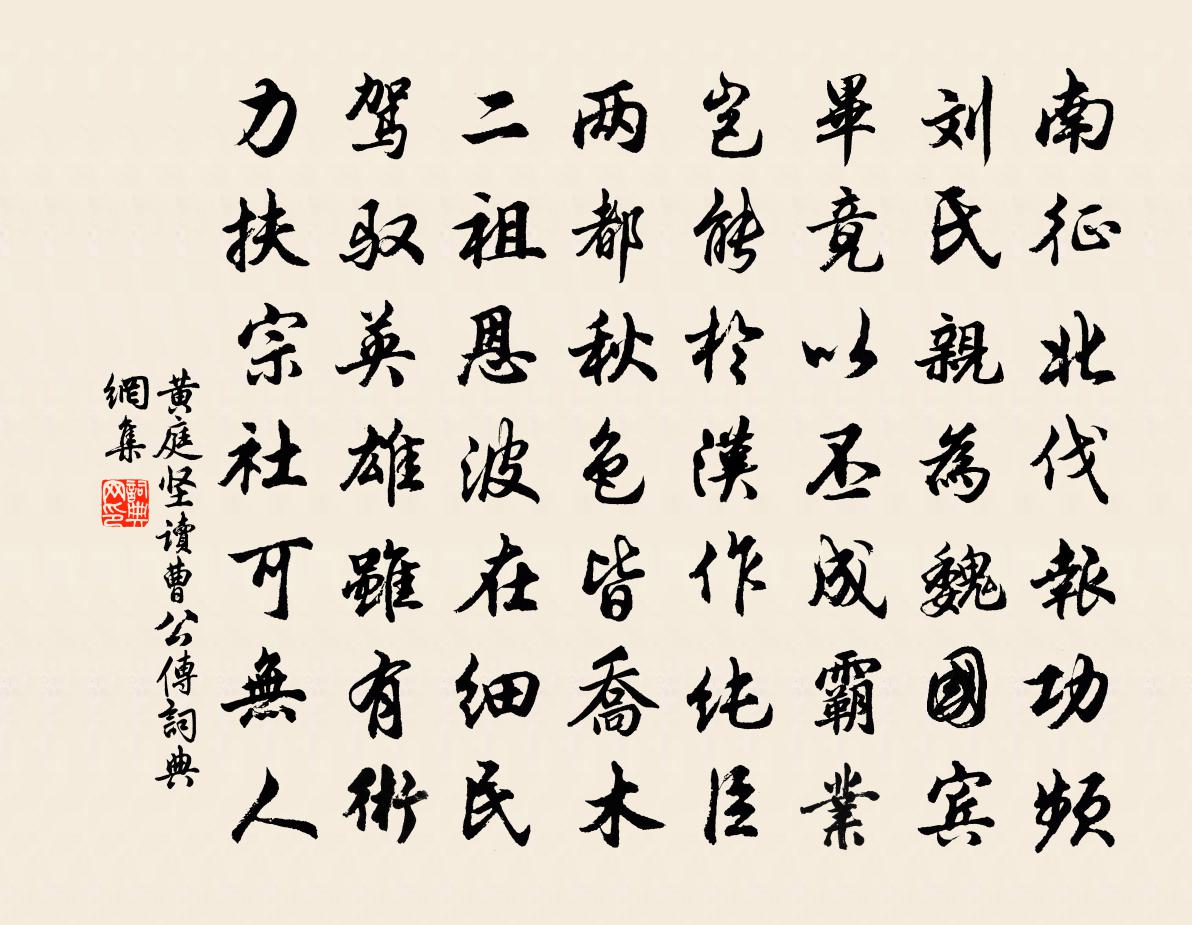 南征北伐報功頻
刘氏親為魏國宾
畢竟以丕成霸業
岂能於漢作纯臣
两都秋色皆喬木
二祖恩波在细民
驾驭英雄雖有術
力扶宗社可無人
黄庭坚读曹公傳詞典
網集
詞典
网印